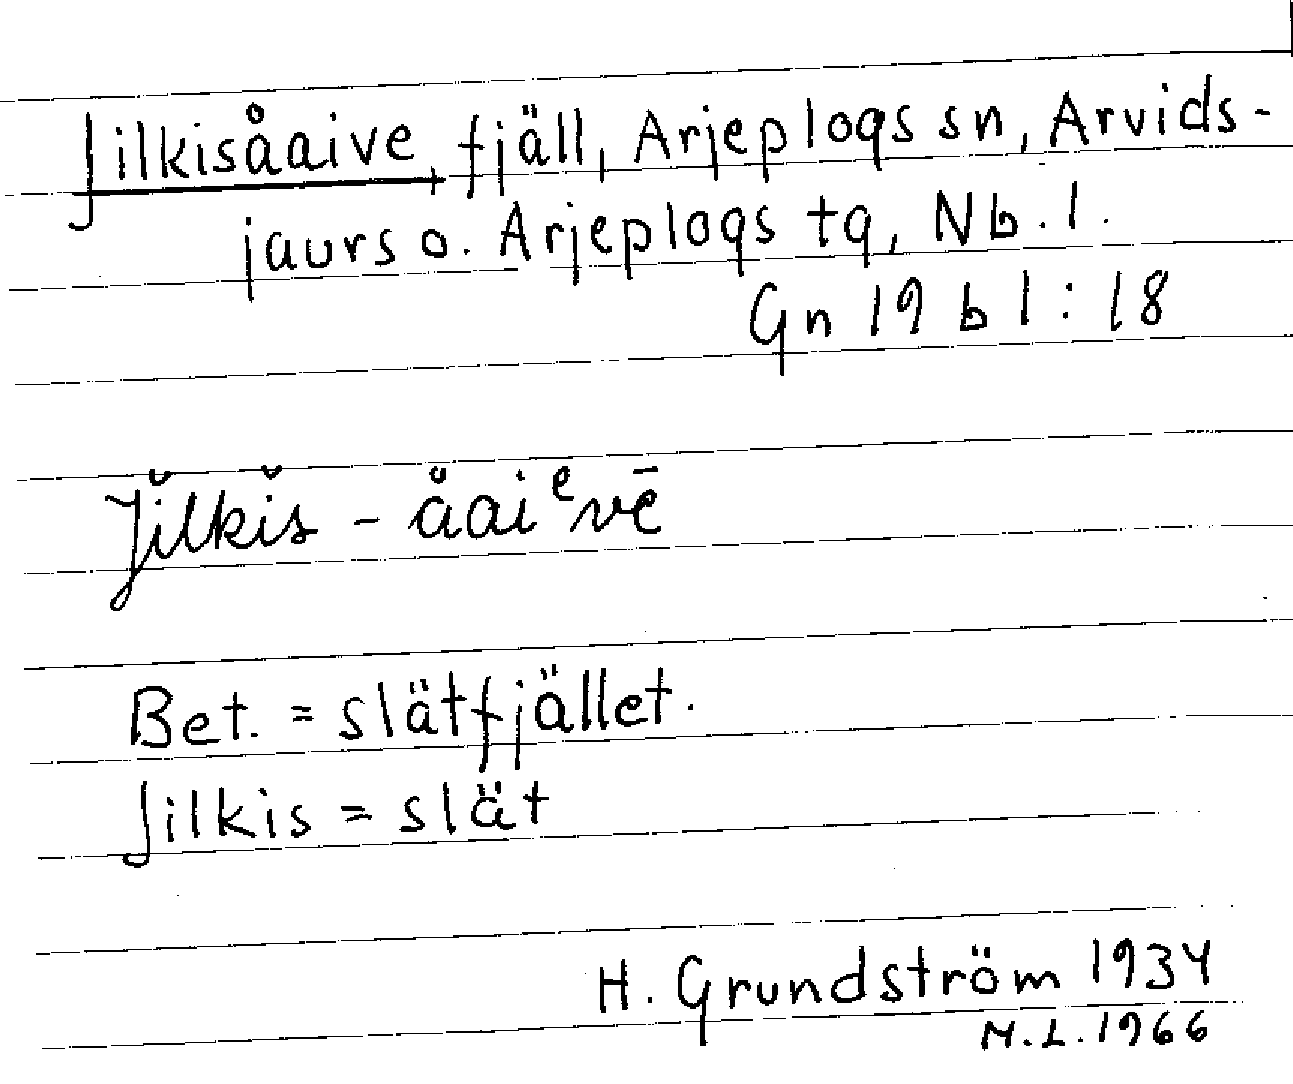 Jilkisåaive, fjäll, Arjeplogs sn, Arvids-
jaurs o. Arjeplogs tg, Nb. l.
Gn 19 b 1:18
jĭlkĭs - åaiᵉvē
Bet. = slätfjället.
Jilkis = slät
H. Grundström 1934
M.L. 1966